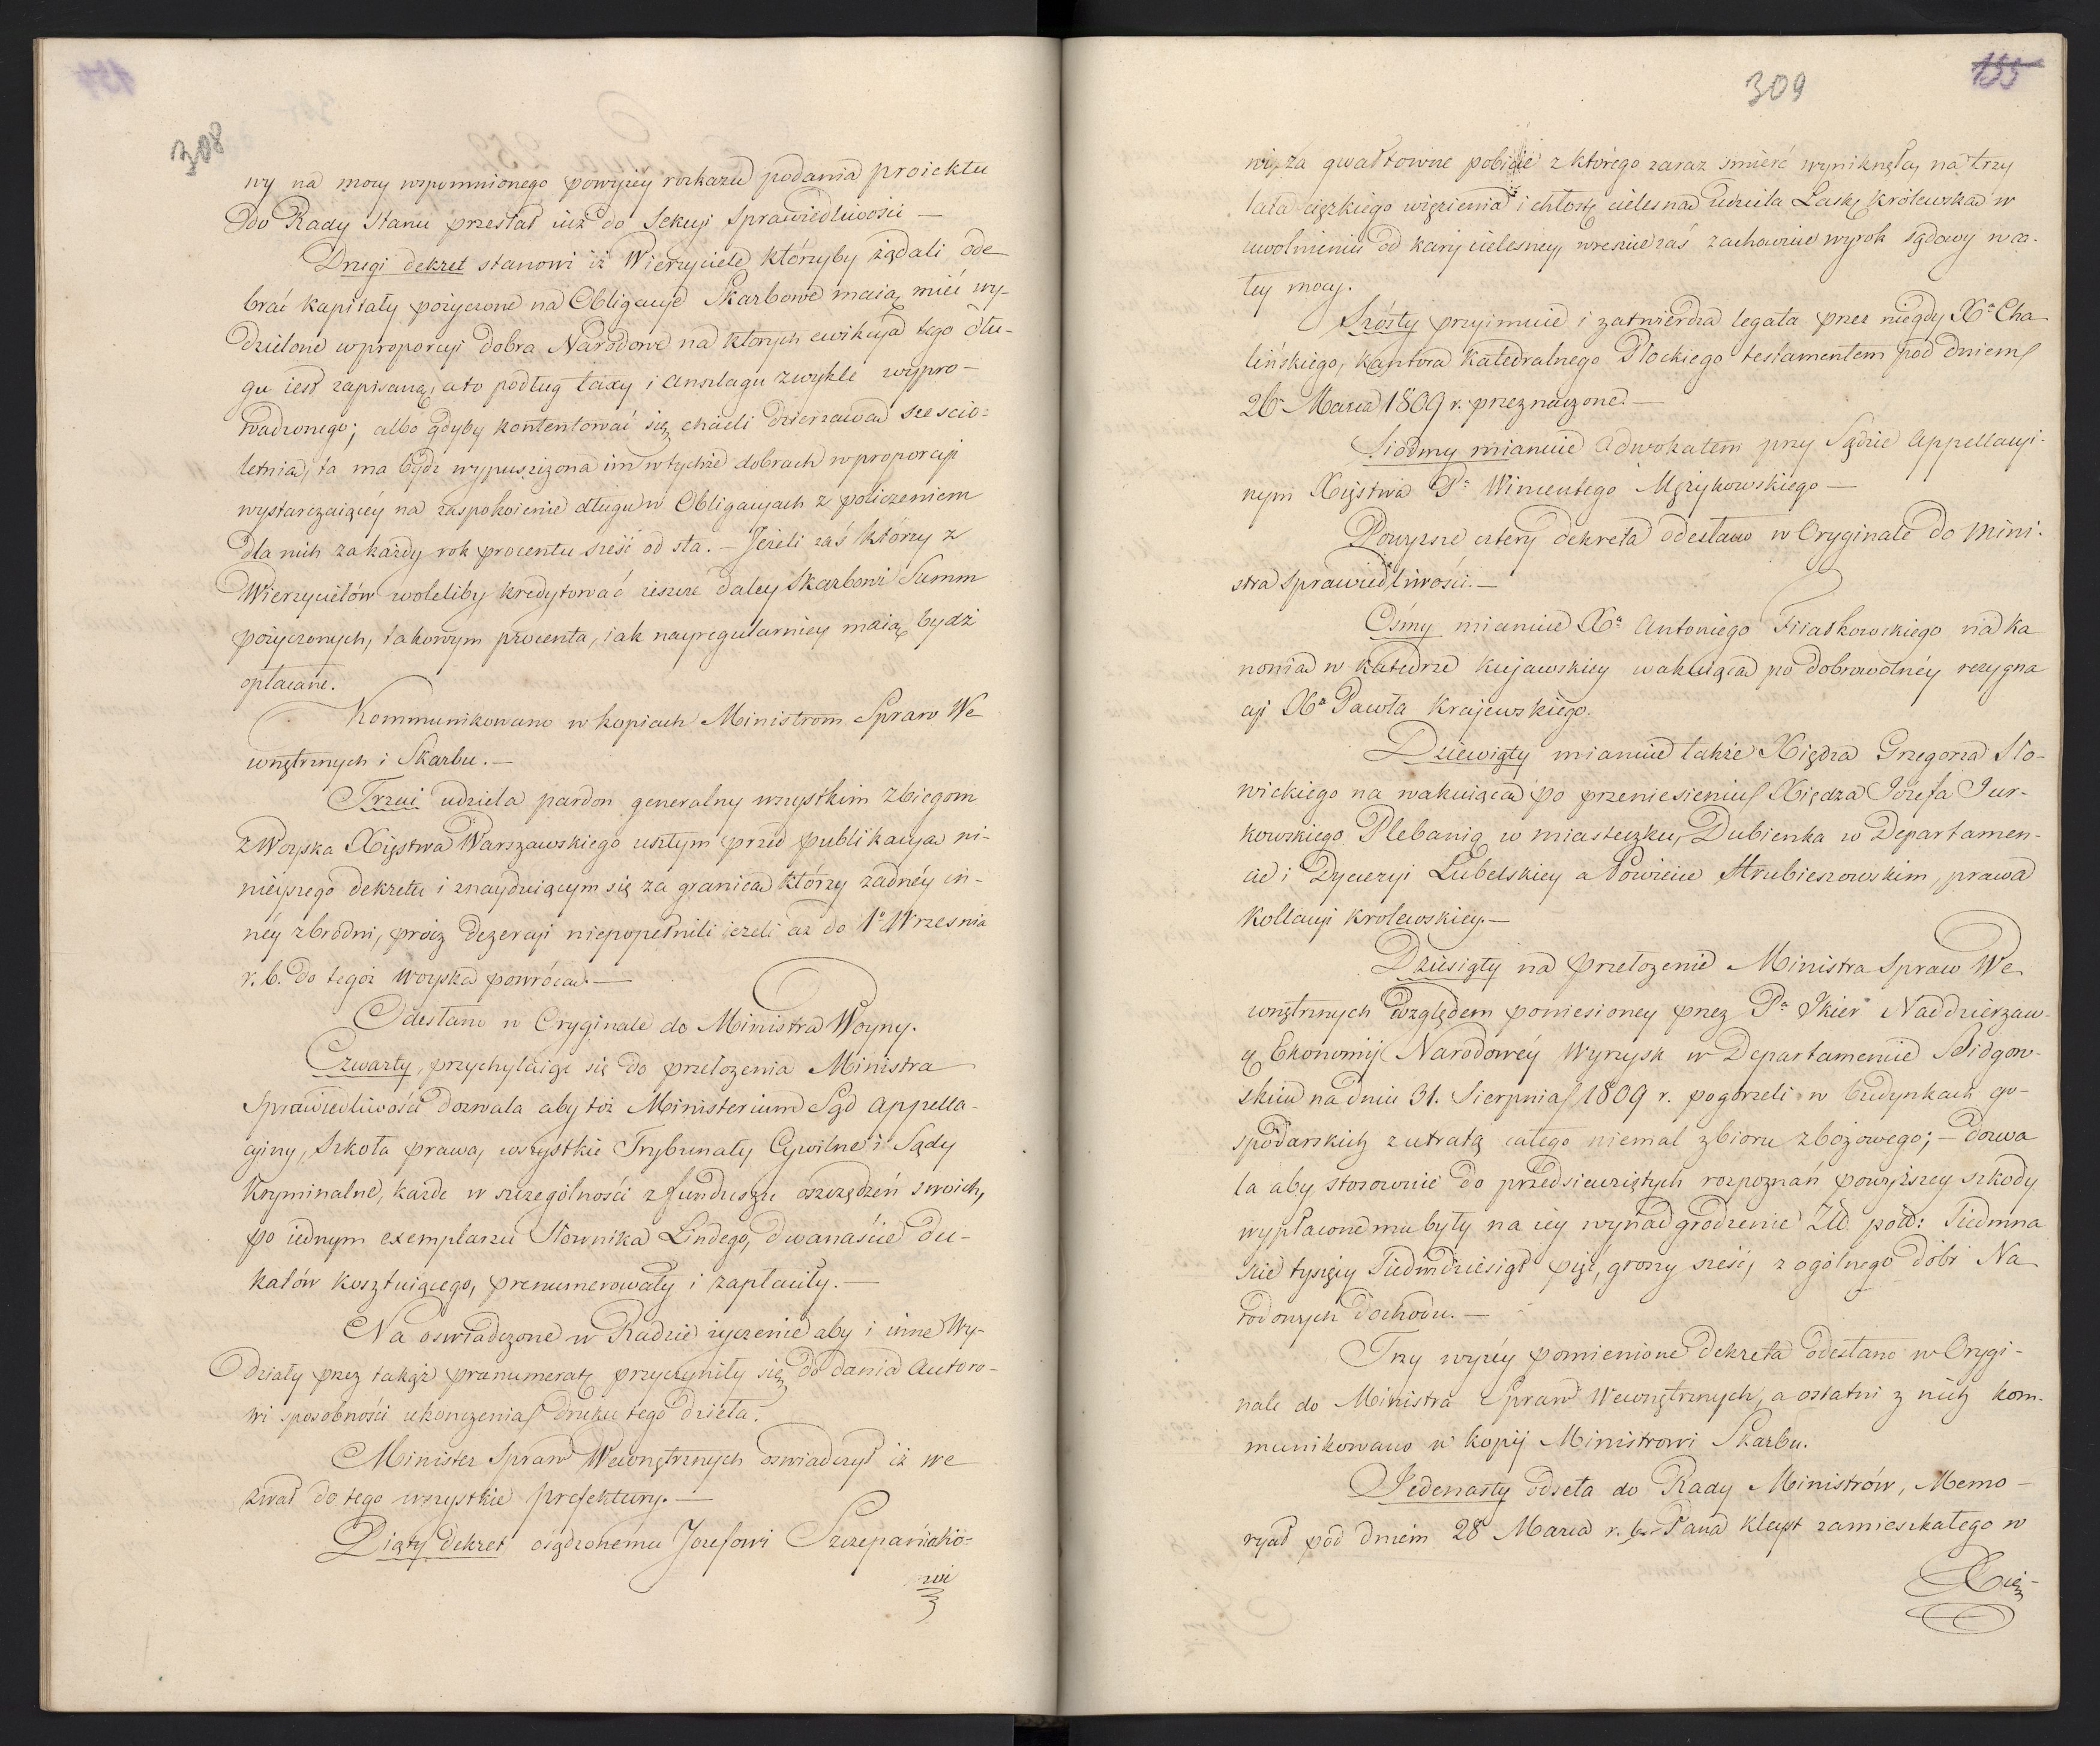 308
ny na mocy wspomnionego powyżey rozkazu podania proiektu
do Rady Stanu przesłał iuż do Sekcyi Sprawiedliwości —
Drugi dekret stanowi iż Wierzyciele którzyby żądali ode
brać kapitały pożyczone na Obligacye Skarbowe maią mieć wy-
dzielone w proporcyi dobra Narodowe na których ewikcya tego dłu-
gu iest zapisaną, a to podług taxy i anszlagu zwykle wypro-
wadzonego; albo gdyby kontentować się chcieli dzierzawą sześcio-
letnią, ta ma bydz wypuszczona im w tychże dobrach w proporcyi
wystarczaiącéy na zaspokoienie długu w Obligacyach z policzeniem
dla nich za każdy rok procentu sześć od sta. — Jeżeli zaś którzy z
Wierzycielów woleliby kredytować ieszcze daley Skarbowi Summ
pożyczonych, takowym procenta, iak nayregularniey maią bydź
opłacane.
Kommunikowano w kopiach Ministrom Spraw We
wnętrznych i Skarbu. —
Trzeci udziela pardon generalny wszystkim zbiegom
z Woyska Xięstwa Warszawskiego uszłym przed publikacyą ni-
nieyszego dekretu i znayduiącym się za granicą którzy zadnéy in-
néy zbrodni, prócz dezercyi niepopełnili ieżeli aż do 1° Wrzesnia
r. b. do tegoż woyska powrócą. —
Odesłano w Oryginale do Ministra Woyny.
Czwarty, przychylaiąc się do przełożenia Ministra
Sprawiedliwości dozwala aby toż Ministerium Sąd Appella-
cyiny, Szkoła prawa, wszystkie Trybunały Cywilne i Sądy
Kryminalne, każde w szczególności z funduszu oszczędzeń swoich,
po iednym exemplarzu Słownika Lindego, dwanaście du-
katów kosztuiącego, prenumerowały i zapłaciły. —
Na oswiadczone w Radzie życzenie aby i inne Wy-
działy przez takąż prænumeratę przyczyniły się do dania Autoro-
wi sposobności ukończenia druku tego dzieła.
Minister Spraw Wewnętrznych oswiadczył iż we
zwał do tego wszystkie prefektury. —
Piąty dekret osądzonému Jozefowi Szczepańcio-
wi
309
155
wi, za gwałtowne pobicie z którego zaraz smierć wyniknęła, na trzy
lata ciężkiego więzienia i chłostę cielesną udziela Łaskę Królewską w
uwolnieniu od kary cielesney, wreszcie zaś zachowuie wyrok sądowy w ca-
łey mocy.
Szósty przyimuie i zatwierdza legata przez niegdy Xa Cha
lińskiego, kantora Katedralnego Płockiego testamentem pod dniem
26 Marca 1809 r. przeznaczone. —
Siodmy mianuie Adwokatem przy Sądzie Appellacyi-
nym Xięstwa Pa Wincentego Mężykowskiego —
Powyzsze cztery dekreta odesłano w Oryginale do Mini-
stra Sprawiedliwości. —
Ósmy mianuie Xa Antoniego Fiiałkowskiego na Ka
nonią w Katedrze Kujawskiey wakuiącą po dobrowolnéy rezygna
cyi Xa Pawła Krajewskiego.
Dziewiąty mianuie także Xiędza Grzegorza Sło-
wickiego na wakuiącą po przeniesieniu Xiędza Józefa Jur-
kowskiego Plebanią w miasteczku, Dubienka w Departamen-
cie i Dyecezyi Lubelskiey a Powiecie Hrubieszowskim, prawa
Kollacyi Krolewskiey. —
Dziesiąty na przełożenie Ministra Spraw We
wnętrznych względem poniesioney przez Pa Skier Naddzierzaw-
cę Ekonomij Narodowéy Wyrzysk w Departamencie Bidgow-
skim na dniu 31. Sierpnia 1809 r. pogorzeli w budynkach go-
spodarskich z utratą całego niemal zbioru zbożowego; — dozwa
la aby stosownie do przedsięwziętych rozpoznań powyższey szkody
wypłacone mu były na iey wynadgrodzenie Złł. pol: Siedmna
ście tysięcy Siedmdziesiąt pięć, groszy sześć, z ogólnego dóbr Na
rodowych dochodu. —
Trzy wyżéy pomienione dekreta odesłano w Orygi-
nale do Ministra Spraw Wewnętrznych, a ostatni z nich kom-
munikowano w kopij Ministrowi Skarbu.
Jedenasty odseła do Rady Ministrów, Memo-
ryał pod dniem 28 Marca r. b. Pana Kleyst zamieszkałego w
Xię-